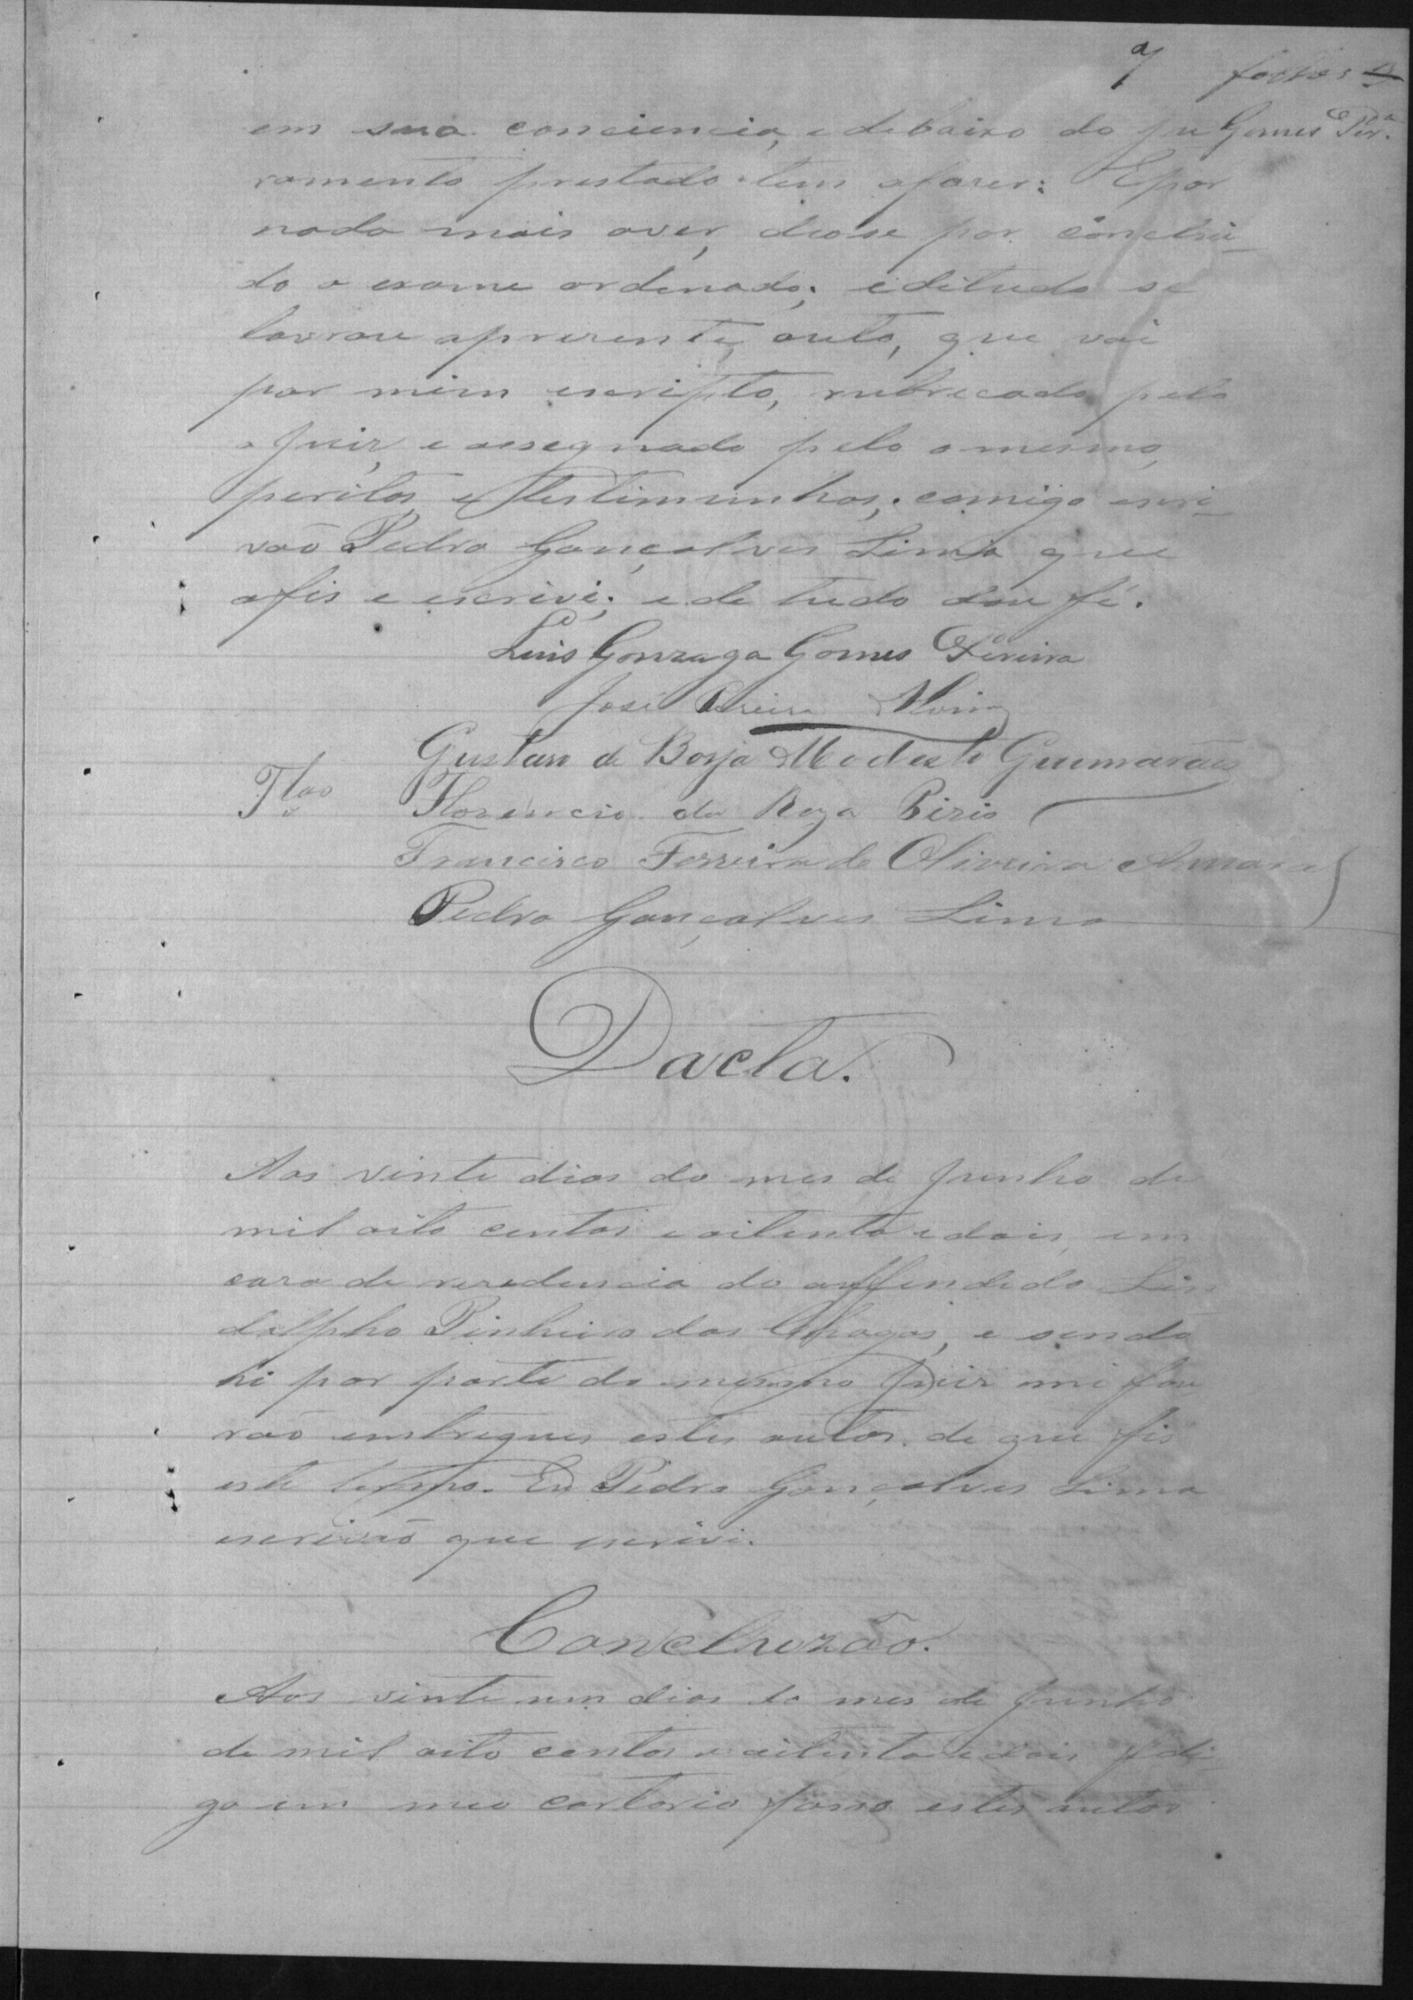 7 folhas
Gomes Per.ª
em sua conciencia, e debaixo do ju
ramento prestado tem afazer: Epor
nada mais aver, deose por conclui
do o exame ordenado; e de tudo se
lavrou apresente auto, que vai
por mim escripto, rubricado pelo
Juiz, e assegnado pelo o mesmo,
peritos, e testimunhas, comigo escri
vão Pedro Gonçalves Lima que
ofis e escrivi; e de tudo dou fé.
Luis Gonzaga Gomes Pereira
José Pereira
Gustavo de Borja Modesto Guimarães
Tªˢ Florencio da Roza Piris
Francisco Ferreira de Oliveira Amaral
Pedro Gonçalves Lima
Dacta.
Aos vinte dias do mes de Junho de
mil oito centos e oitenta e dois, em
caza de rezedencia do offendido Lin
dolpho Pinheiro das Chagas, e sendo
hi por parte do mesmo Juiz me fou
rão entregues estes autos, de que fis
este termo. Eu Pedro Gonçalves Lima
escrivão que escrivi.
Concluzão.
Aos vinte um dias do mes de Junho
de mil oito centos e oitenta e dois, di
go em meu cartorio faço estes autos